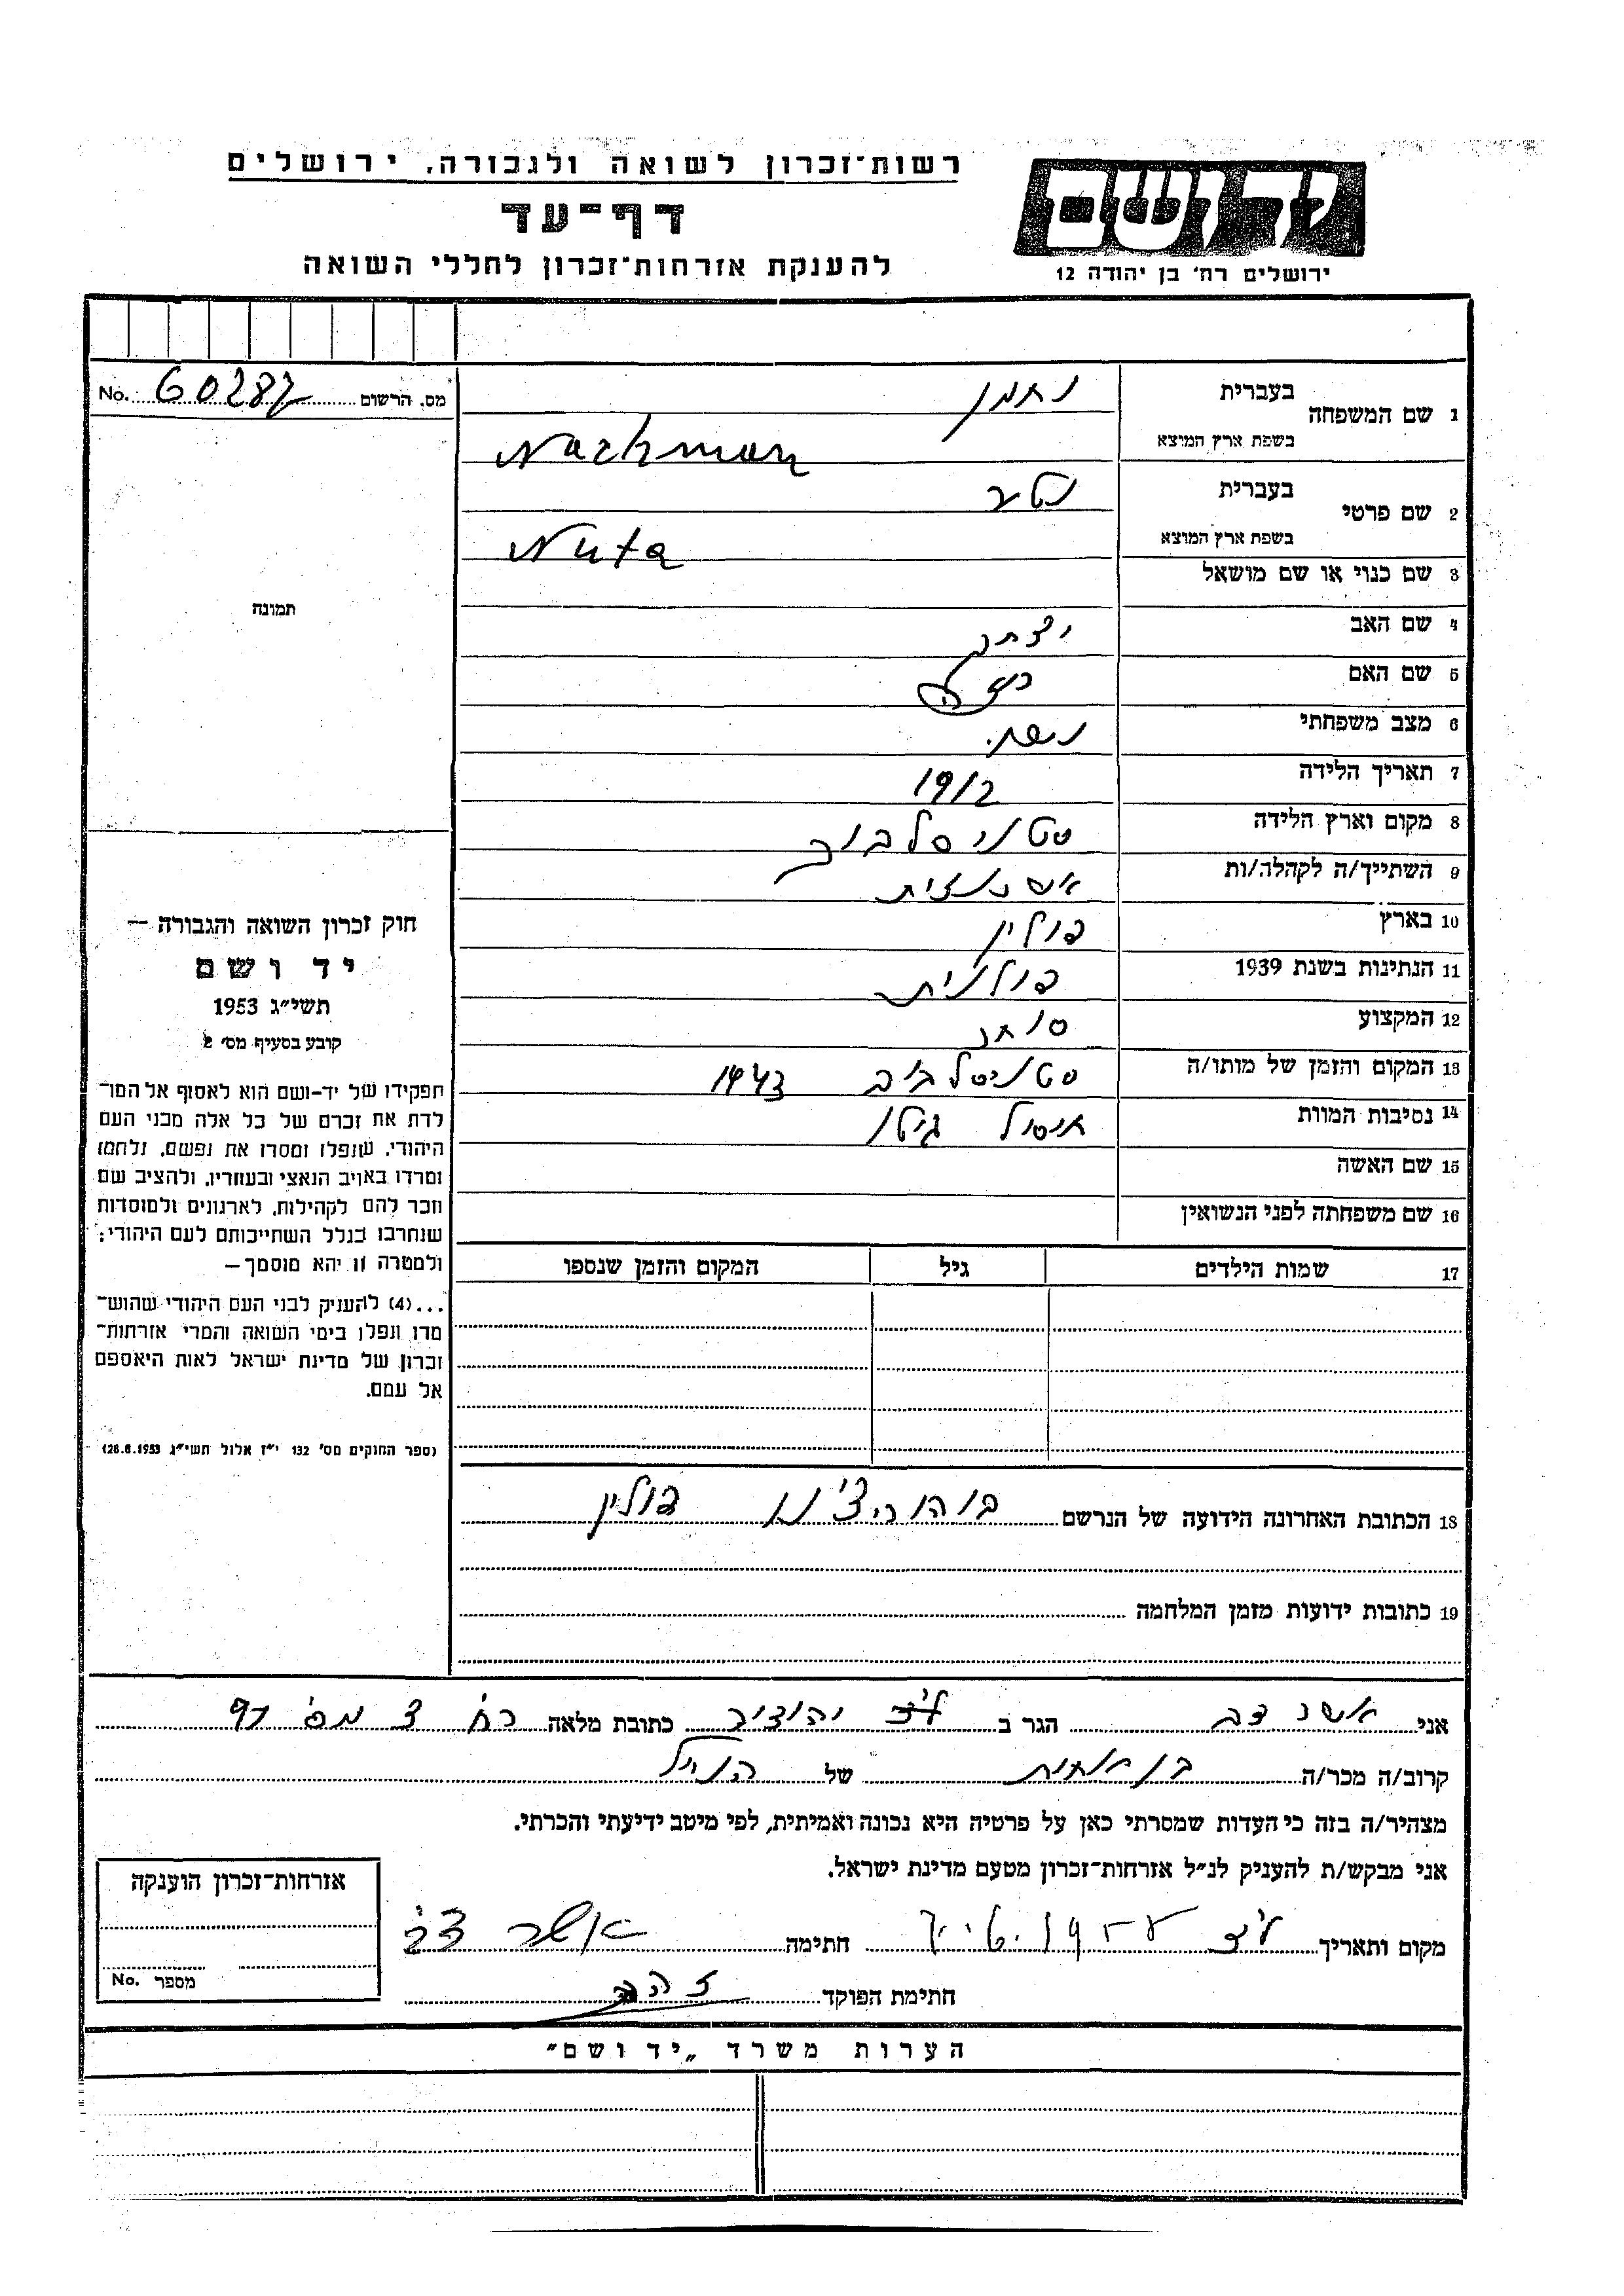 רשות־זכרון לשואה ולגבורה, ירושלים
דף־עד
להענקת אזרחות־זכרון לחללי השואה
יד ושם
ירושלים רח' בן יהודה 12
מס. הרשום No. 60282
1 שם המשפחה
בעברית נחמן
בשפת ארץ המוצא Nachman
2 שם פרטי
בעברית נטע
בשפת ארץ המוצא Nuta
3 שם כנוי או שם מושאל
4 שם האב יצחק
5 שם האם
6 מצב משפחתי
7 תאריך הלידה 1912
8 מקום וארץ הלידה סטניסלבוב
9 השתייך/ה לקהלה/ות אשכנזית
10 בארץ פולין
11 הנתינות בשנת 1939 פולנית
12 המקצוע סוחר
13 המקום והזמן של מותו/ה סטניסלבוב 1943
14 נסיבות המוות חיסול גיטו
15 שם האשה
16 שם משפחתה לפני הנשואין
17 שמות הילדים גיל המקום והזמן שנספו
תמונה
חוק זכרון השואה והגבורה —
יד ושם
תשי״ג 1953
קובע בסעיף מס' 2
תפקידו של יד-ושם הוא לאסוף אל המו־
לדת את זכרם של כל אלה מבני העם
היהודי, שנפלו ומסרו את נפשם, נלחמו
ומרדו באויב הנאצי ובעוזריו, ולהציב שם
וזכר להם לקהילות, לארגונים ולמוסדות
שנחרבו בגלל השתייכותם לעם היהודי;
ולמטרה זו יהא מוסמך —
...(4) להעניק לבני העם היהודי שהוש־
מדו ונפלו בימי השואה והמרי אזרחות־
זכרון של מדינת ישראל לאות היאספם
אל עמם.
(ספר החוקים מס' 132 י״ז אלול תשי״ג 28.8.1953)
18 הכתובת האחרונה הידועה של הנרשם פולין
19 כתובות ידועות מזמן המלחמה
אני אשר צבי הגר ב כתובת מלאה
קרוב/ה מכר/ה בן אחות של הנ״ל
מצהיר/ה בזה כי העדות שמסרתי כאן על פרטיה היא נכונה ואמיתית, לפי מיטב ידיעתי והכרתי.
אני מבקש/ת להעניק לנ״ל אזרחות־זכרון מטעם מדינת ישראל.
מקום ותאריך חתימה אשר צבי
חתימת הפוקד זהבה
אזרחות־זכרון הוענקה
מספר No.
הערות משרד „יד ושם״